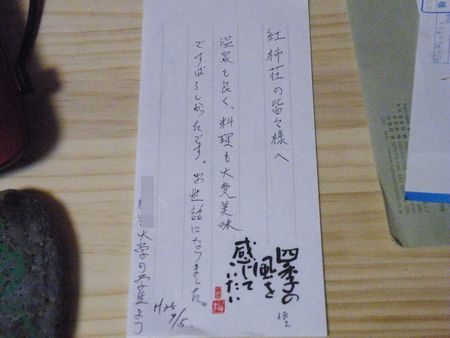 紅柿荘の皆々様へ
温泉も良く、料理も大変美味
ですばらしかったです。お世話になりました。
大学の学生より
H25
9/5.
四季の
風を
感じて
いたい